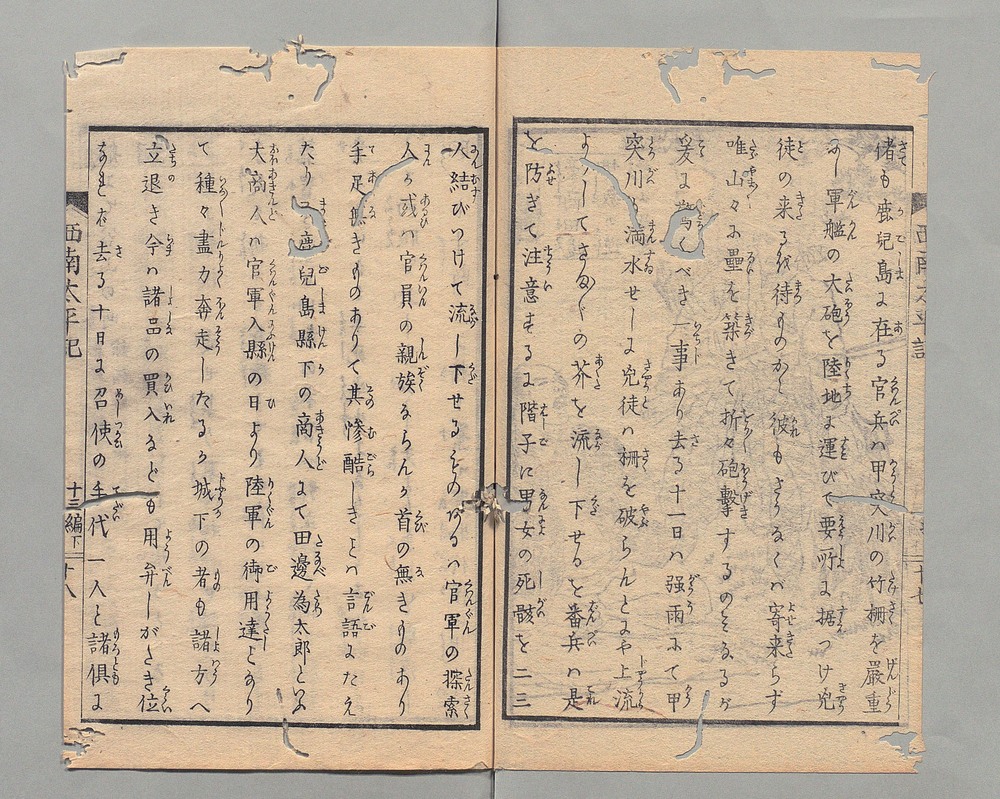 偖も鹿児島に在る官兵ハ甲突川の竹柵を嚴重
し軍艦の大砲を陸地に運びて要所に据つけ兇
徒の来るを待ものから彼もさるなくバ寄来らず
唯山々に壘を築きて折々砲撃するのミなるが
爰に べき一事あり去る十一日ハ强雨にて甲
突川 満水せしに兇徒ハ柵を破らんとにや上流
より してさ の芥を流し下せるを番兵ハ是
を防ぎて注意するに階子に男女の死骸を二三
人結びつけて流し下せるものあるハ官軍の探索
人か或ハ官員の親族ならんか首の無きものあり
手足無きものありて其惨酷しきとハ言語にたえ
たり 鹿児島縣下の商人にて田邊為太郎といふ
大商人ハ官軍入縣の日より陸軍の御用達となり
て種々盡力奔走したるが城下の者も諸方へ
立退き今ハ諸品の買入なども用弁しがたき位
なれバ去る十日に召使の手代一人と諸俱に
西南太平記
西南太平記
十三編下
十八
十七